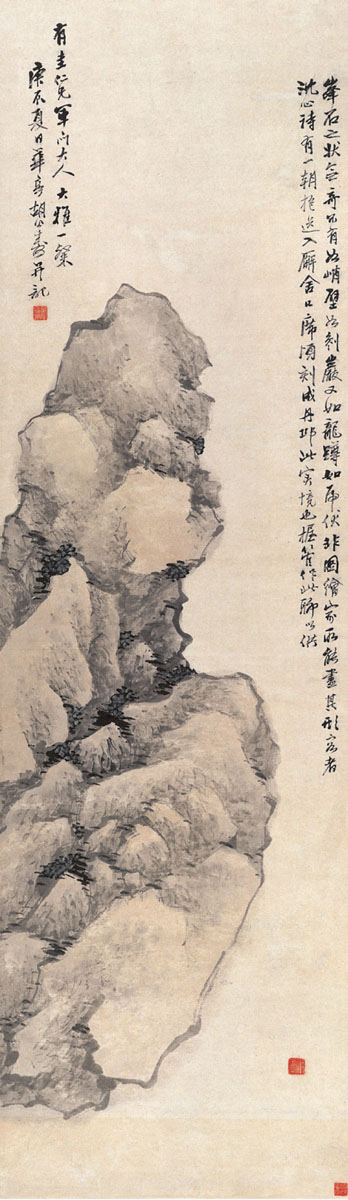 峯石之状奇有如峭壁如巖又如龍蹲如虎伏非圖繪家所能盡其形容者
沈心詩有一朝抱送入廨舍口席頃刻成丹邱此實境也握管作此聊以供
有圭仁兄軍門大人 大雅一粲
庚辰夏日華亭胡公壽并記